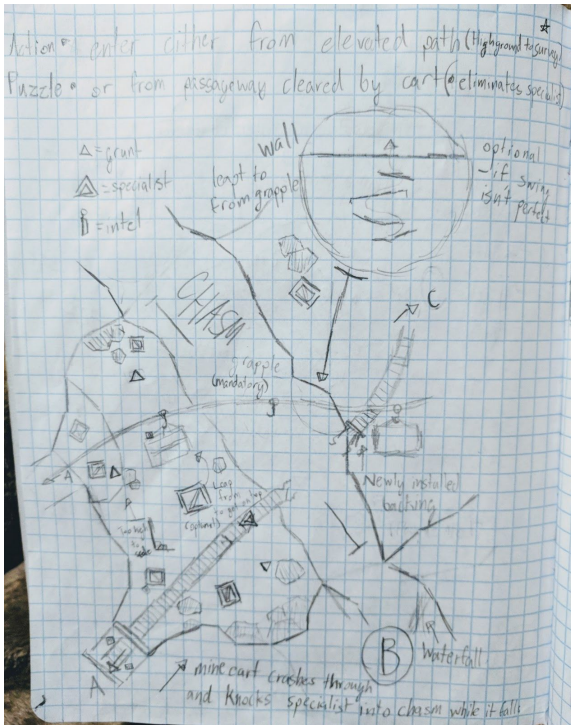 Action • enter either from elevated path (Highground to survey)
Puzzle • or from passageway cleared by cart (• eliminates specialist)
= grunt
= specialist
= intel
wall
leapt to
from grapple
optional
- if swing
isn't perfect
CHASM
C
grapple
(mandatory)
A
Leap
from
to get on top
(optional)
Two
Newly installed
backing
B
Waterfall
A
mine cart crashes through
and knocks specialist into chasm while it falls